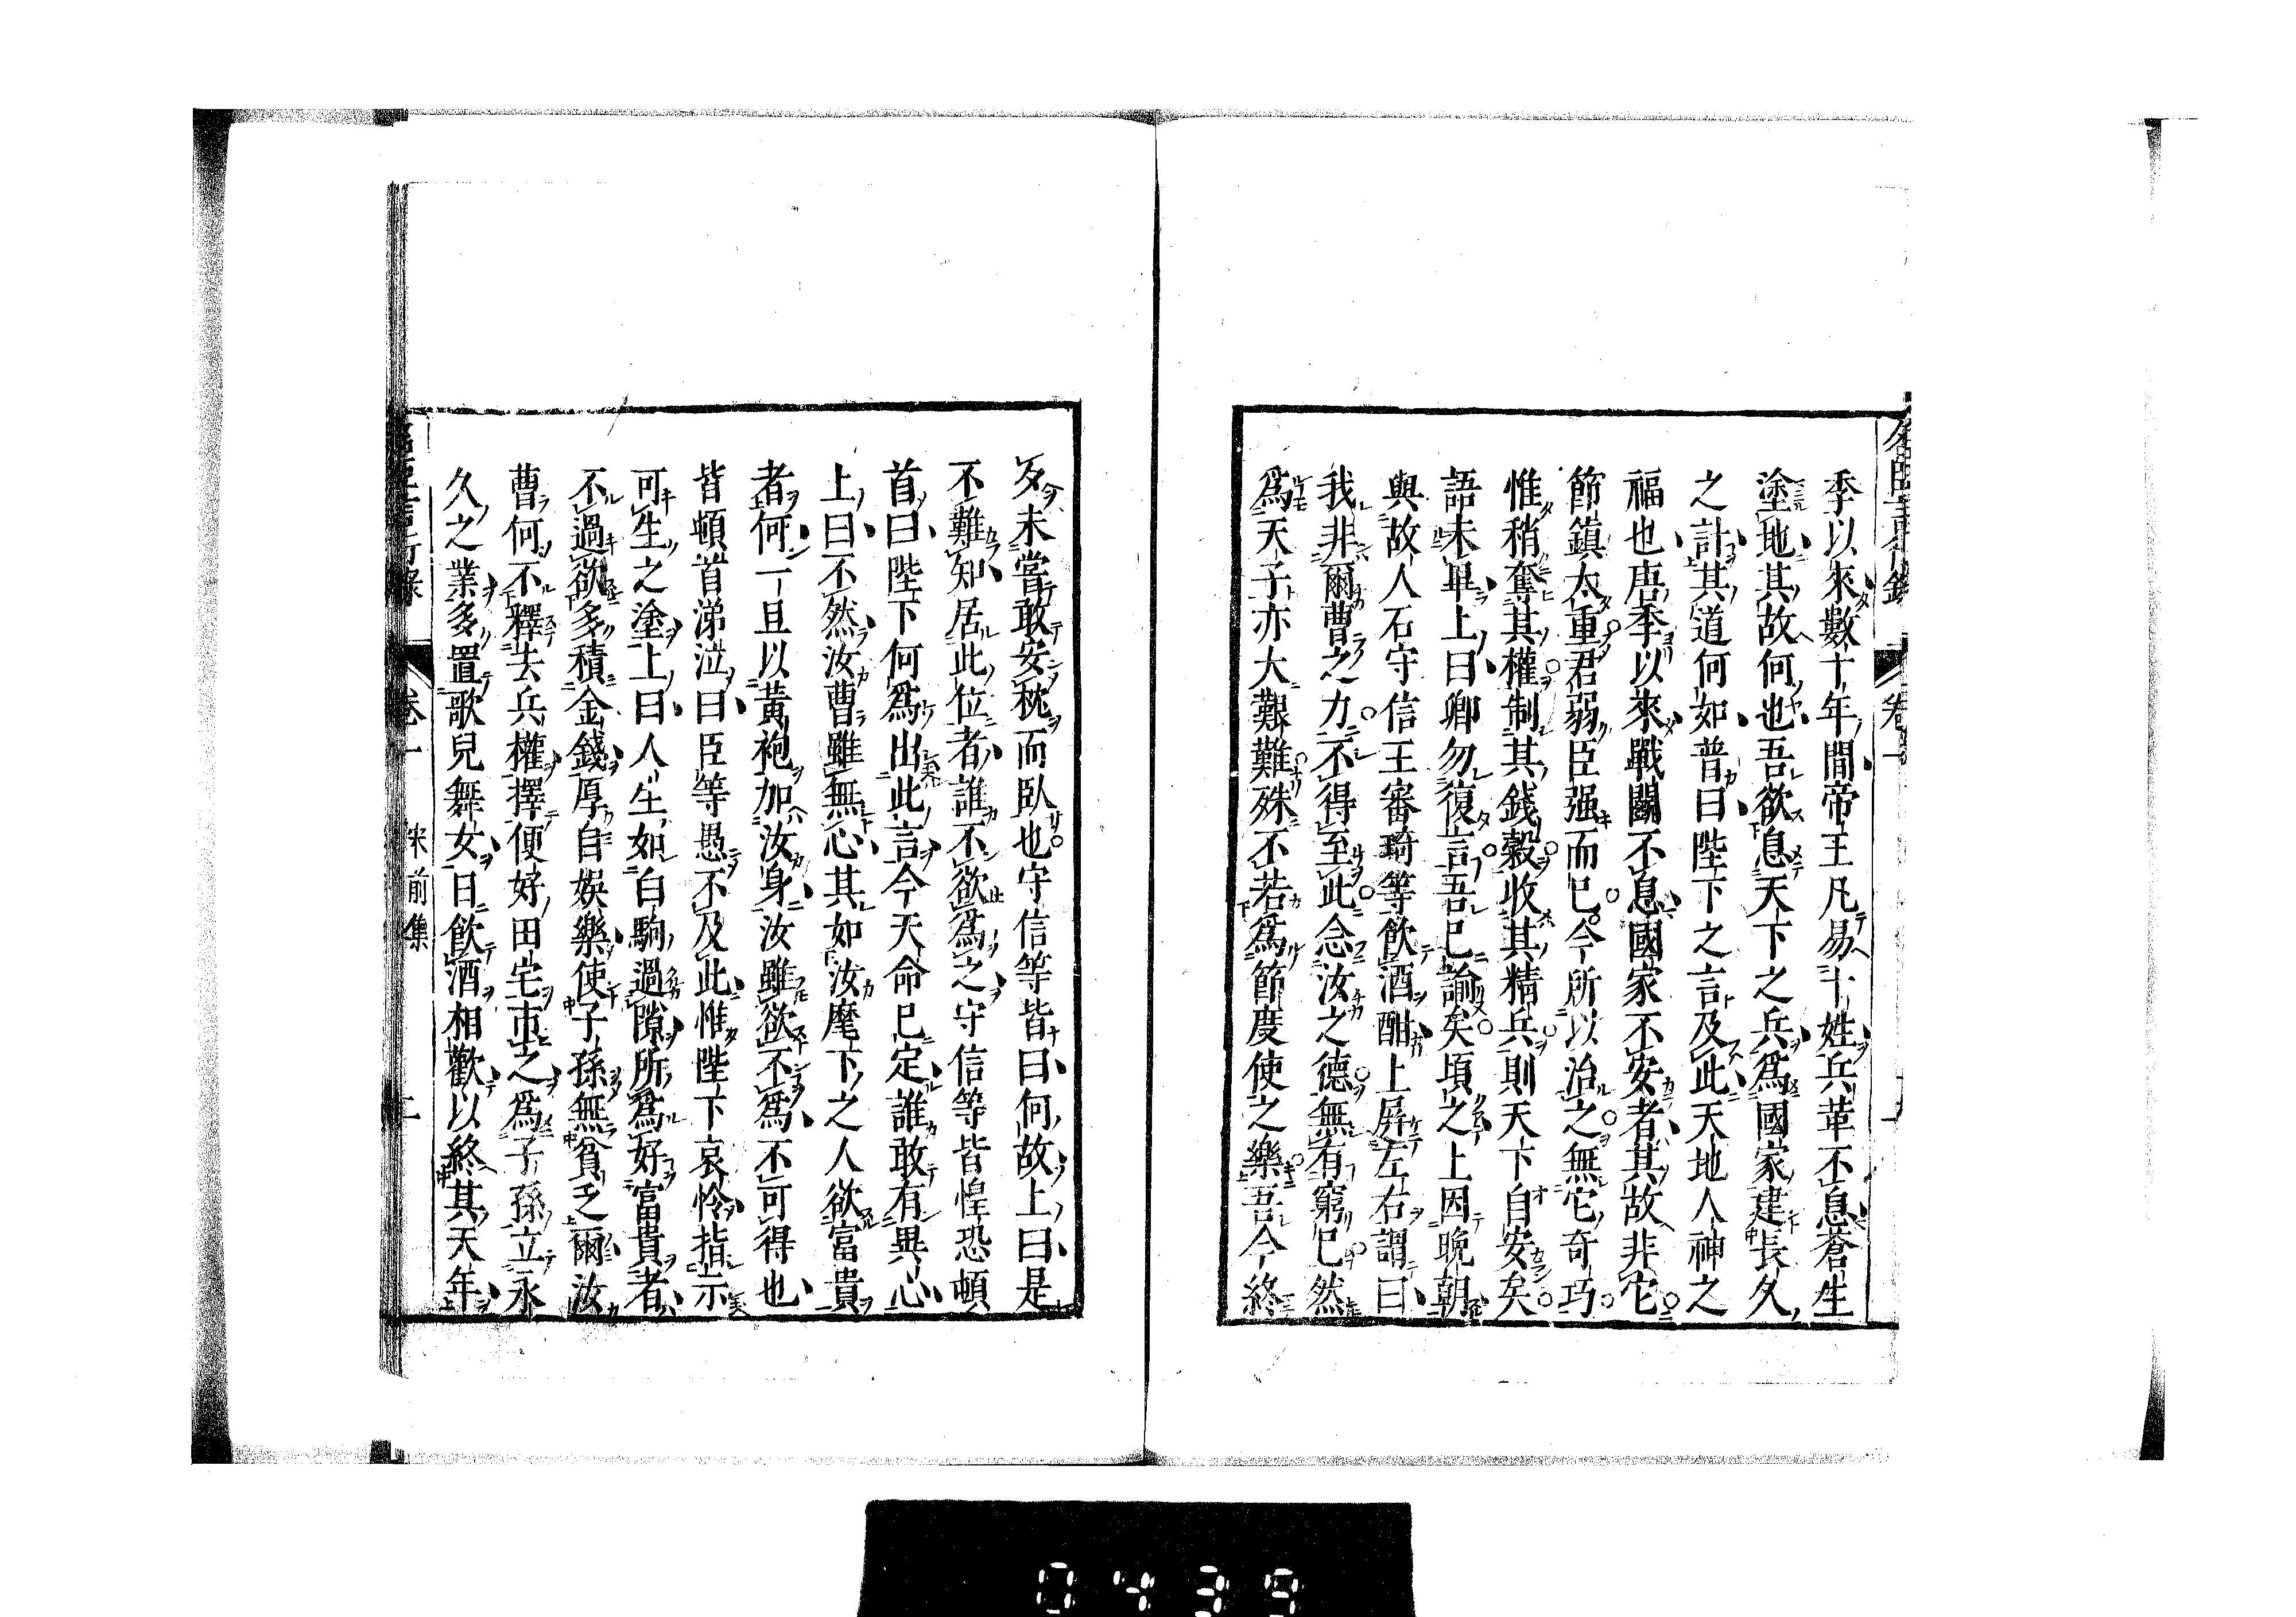 季以來數十年間帝王凡易十姓兵革不息蒼生
塗地其故何也吾欲息天下之兵爲國家建長久
之計其道何如普曰陛下之言及此天地人神之
福也唐季以來戰鬭不息國家不安者其故非它
節鎮太重君弱臣强而已今所以治之無它奇巧
惟稍奪其權制其錢穀收其精兵則天下自安矣
語未畢上曰卿勿復言吾已諭矣頃之上因晚朝
與故人石守信王審琦等飲酒酣上屏左右謂曰
我非爾曹之力不得至此念汝之德無有窮已然
爲天子亦大艱難殊不若爲節度使之樂吾今終
夕未嘗敢安枕而臥也守信等皆曰何故上曰是
不難知居此位者誰不欲爲之守信等皆惶恐頓
首曰陛下何爲出此言今天命已定誰敢有異心
上曰不然汝曹雖無心其如汝麾下之人欲富貴
者何一旦以黃袍加汝身汝雖欲不爲不可得也
皆頓首涕泣曰臣等愚不及此惟陛下哀怜指示
可生之塗上曰人生如白駒過隙所爲好富貴者
不過欲多積金錢厚自娛樂使子孫無貧乏爾汝
曹何不釋去兵權擇便好田宅市之爲子孫立永
久之業多置歌兒舞女日飲酒相歡以終其天年
卷一 宋前集 二
0439